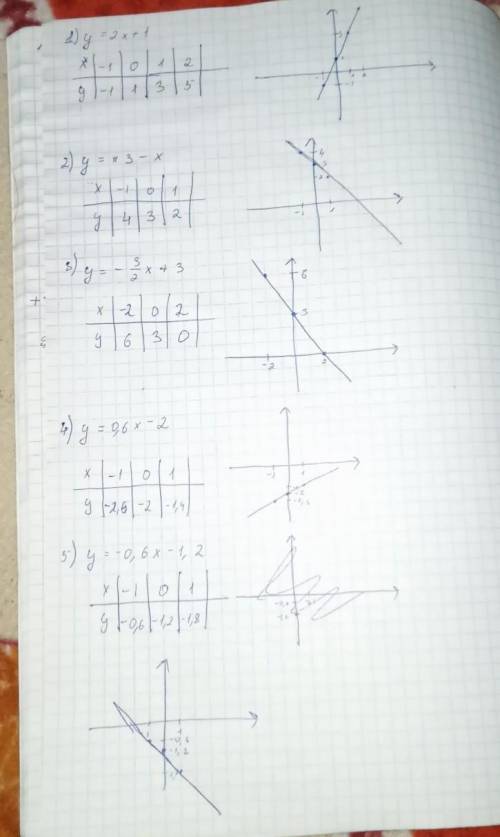 1) y = 2x+1
x | -1 | 0 | 1 | 2
y | -1 | 1 | 3 | 5
2) y = 3 - x
x | -1 | 0 | 1
y | 4 | 3 | 2
4
3
-1 1
3) y = - 3/2 x + 3
x | -2 | 0 | 2
y | 6 | 3 | 0
6
3
-2 2
4) y = 0,6x - 2
x | -1 | 0 | 1
y | -2,6 | -2 | -1,4
-1 1
-2
-1,4
5) y = -0,6x - 1,2
x | -1 | 0 | 1
y | -0,6 | -1,2 | -1,8
1
-0,6
-1,2